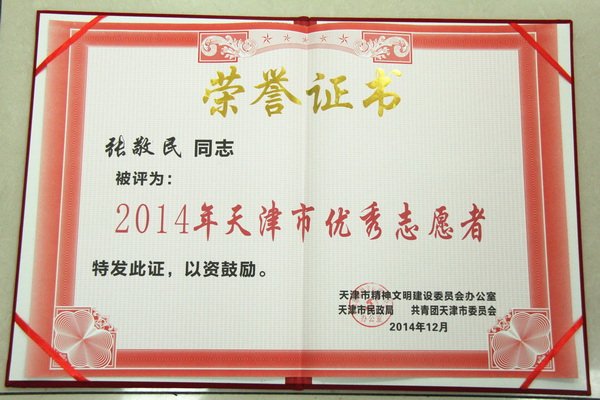 荣誉证书
张敬民 同志
被评为：
2014年天津市优秀志愿者
特发此证，以资鼓励。
天津市精神文明建设委员会办公室
天津市民政局 共青团天津市委员会
2014年12月
办公室